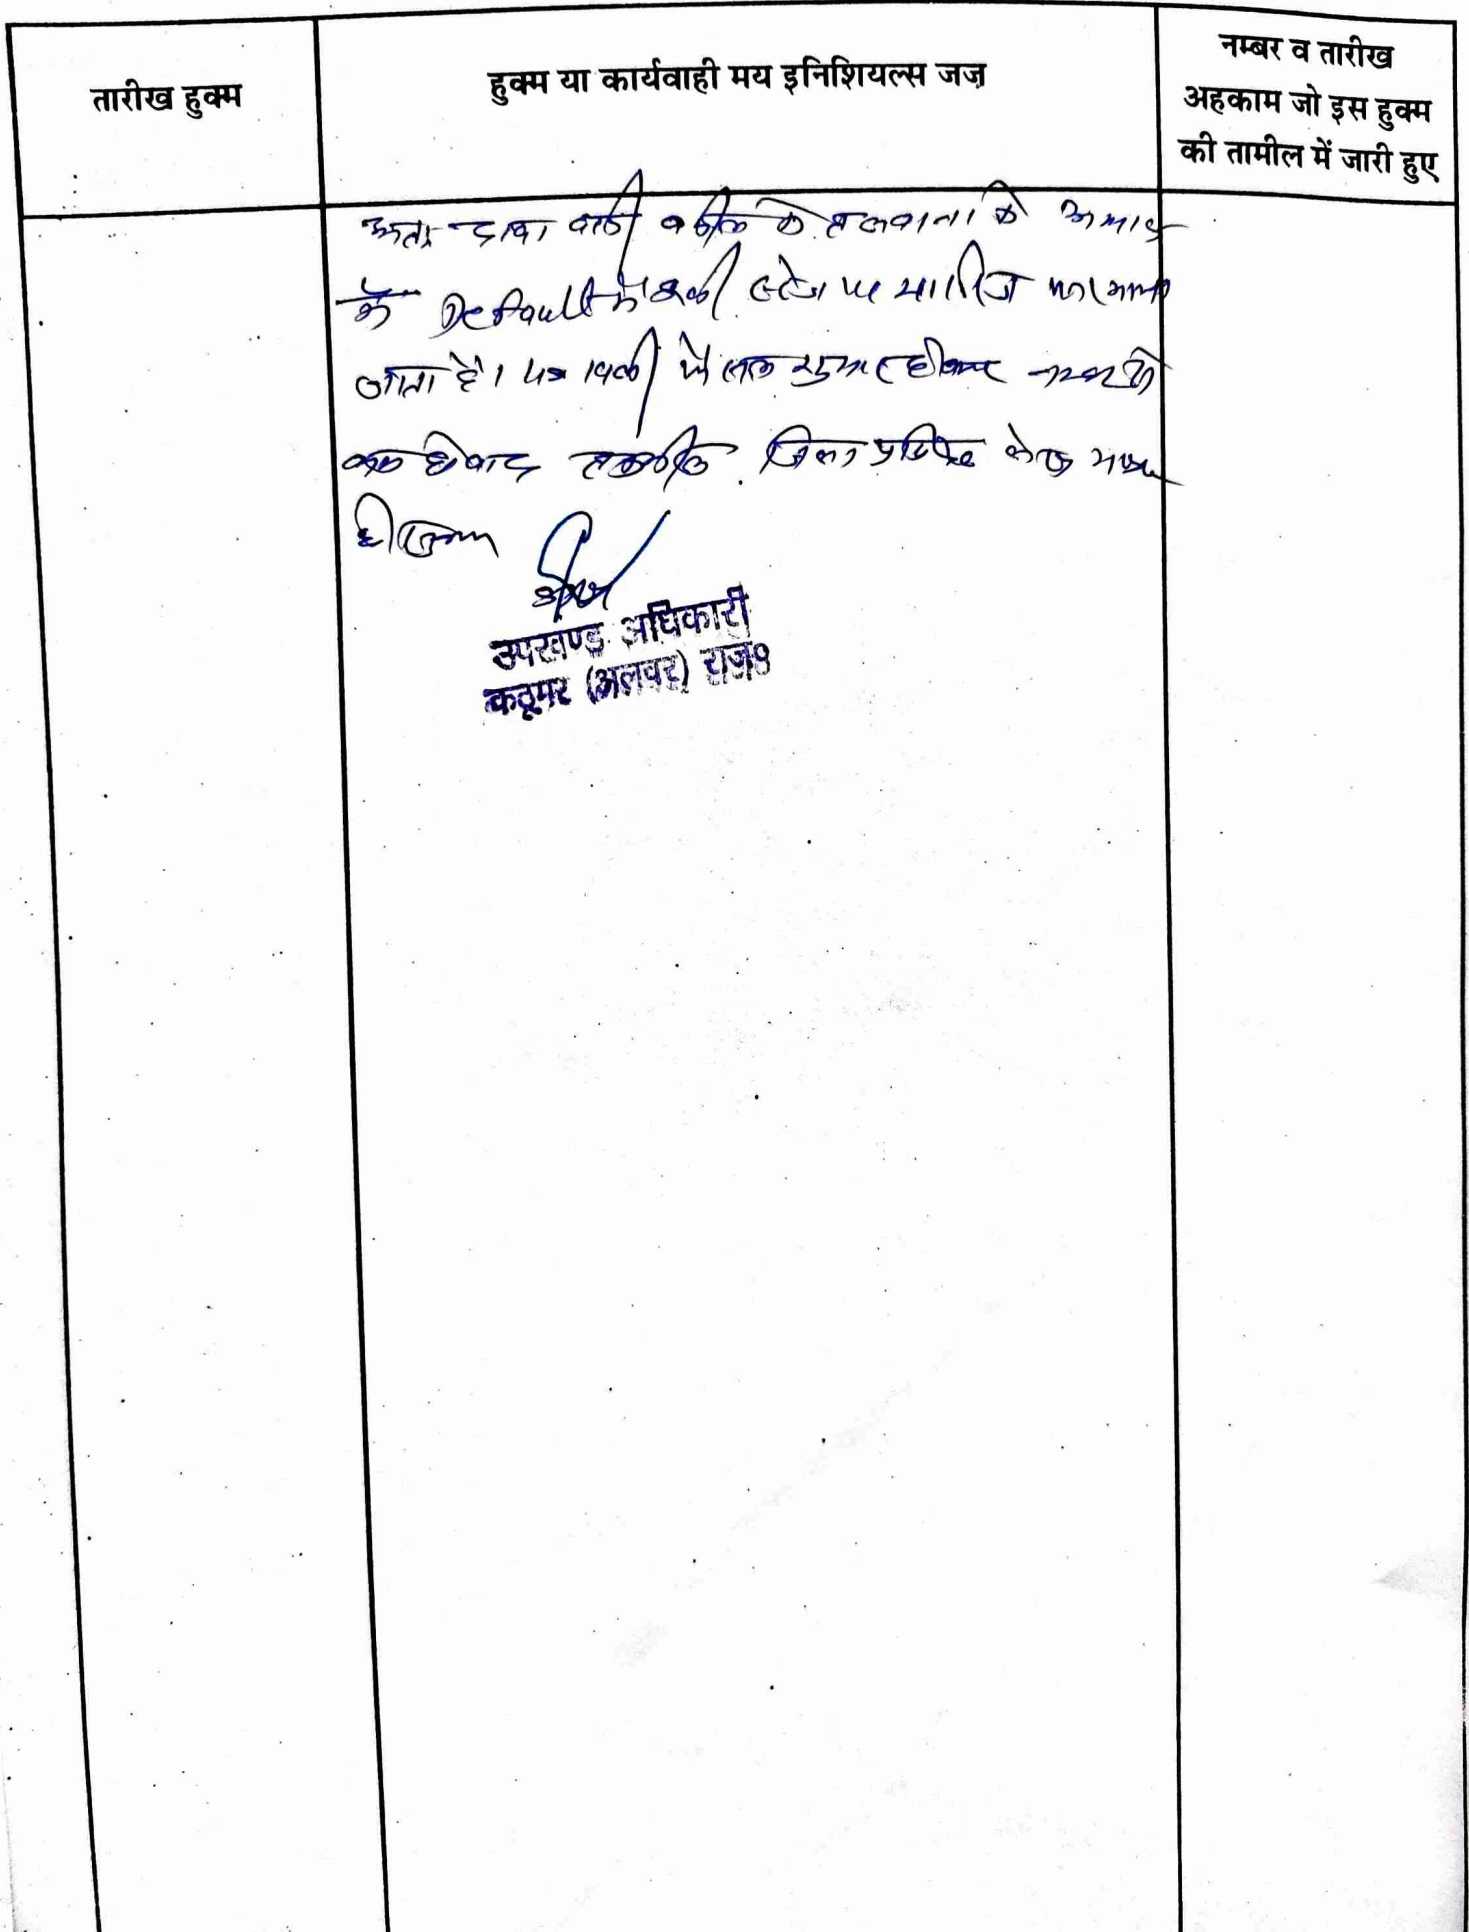 तारीख हुक्म
हुक्म या कार्यवाही मय इनिशियल्स जज़
नम्बर व तारीख
अहकाम जो इस हुक्म
की तामील में जारी हुए
अतः दावा वादी वकील के तलवाना के अभाव
में Default में इसी स्टेज पर खारिज
जाता है। पत्रावली फैसल शुमार होकर नम्बर से
कम होवाद तकमील दाखिल
हो।
उपखण्ड अधिकारी
कठूमर (अलवर) राज॰